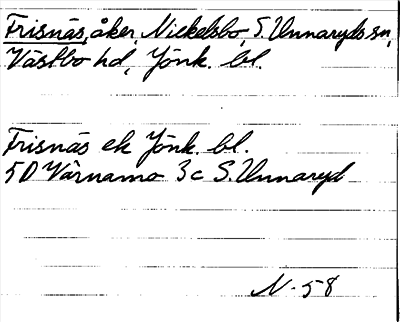 Frisnäs, åker, Nickelsbo, S. Unnaryds sn,
Västbo hd, Jönk. bl.
Frisnäs ek Jönk. bl.
5D Värnamo 3c S. Unnaryd
N-58